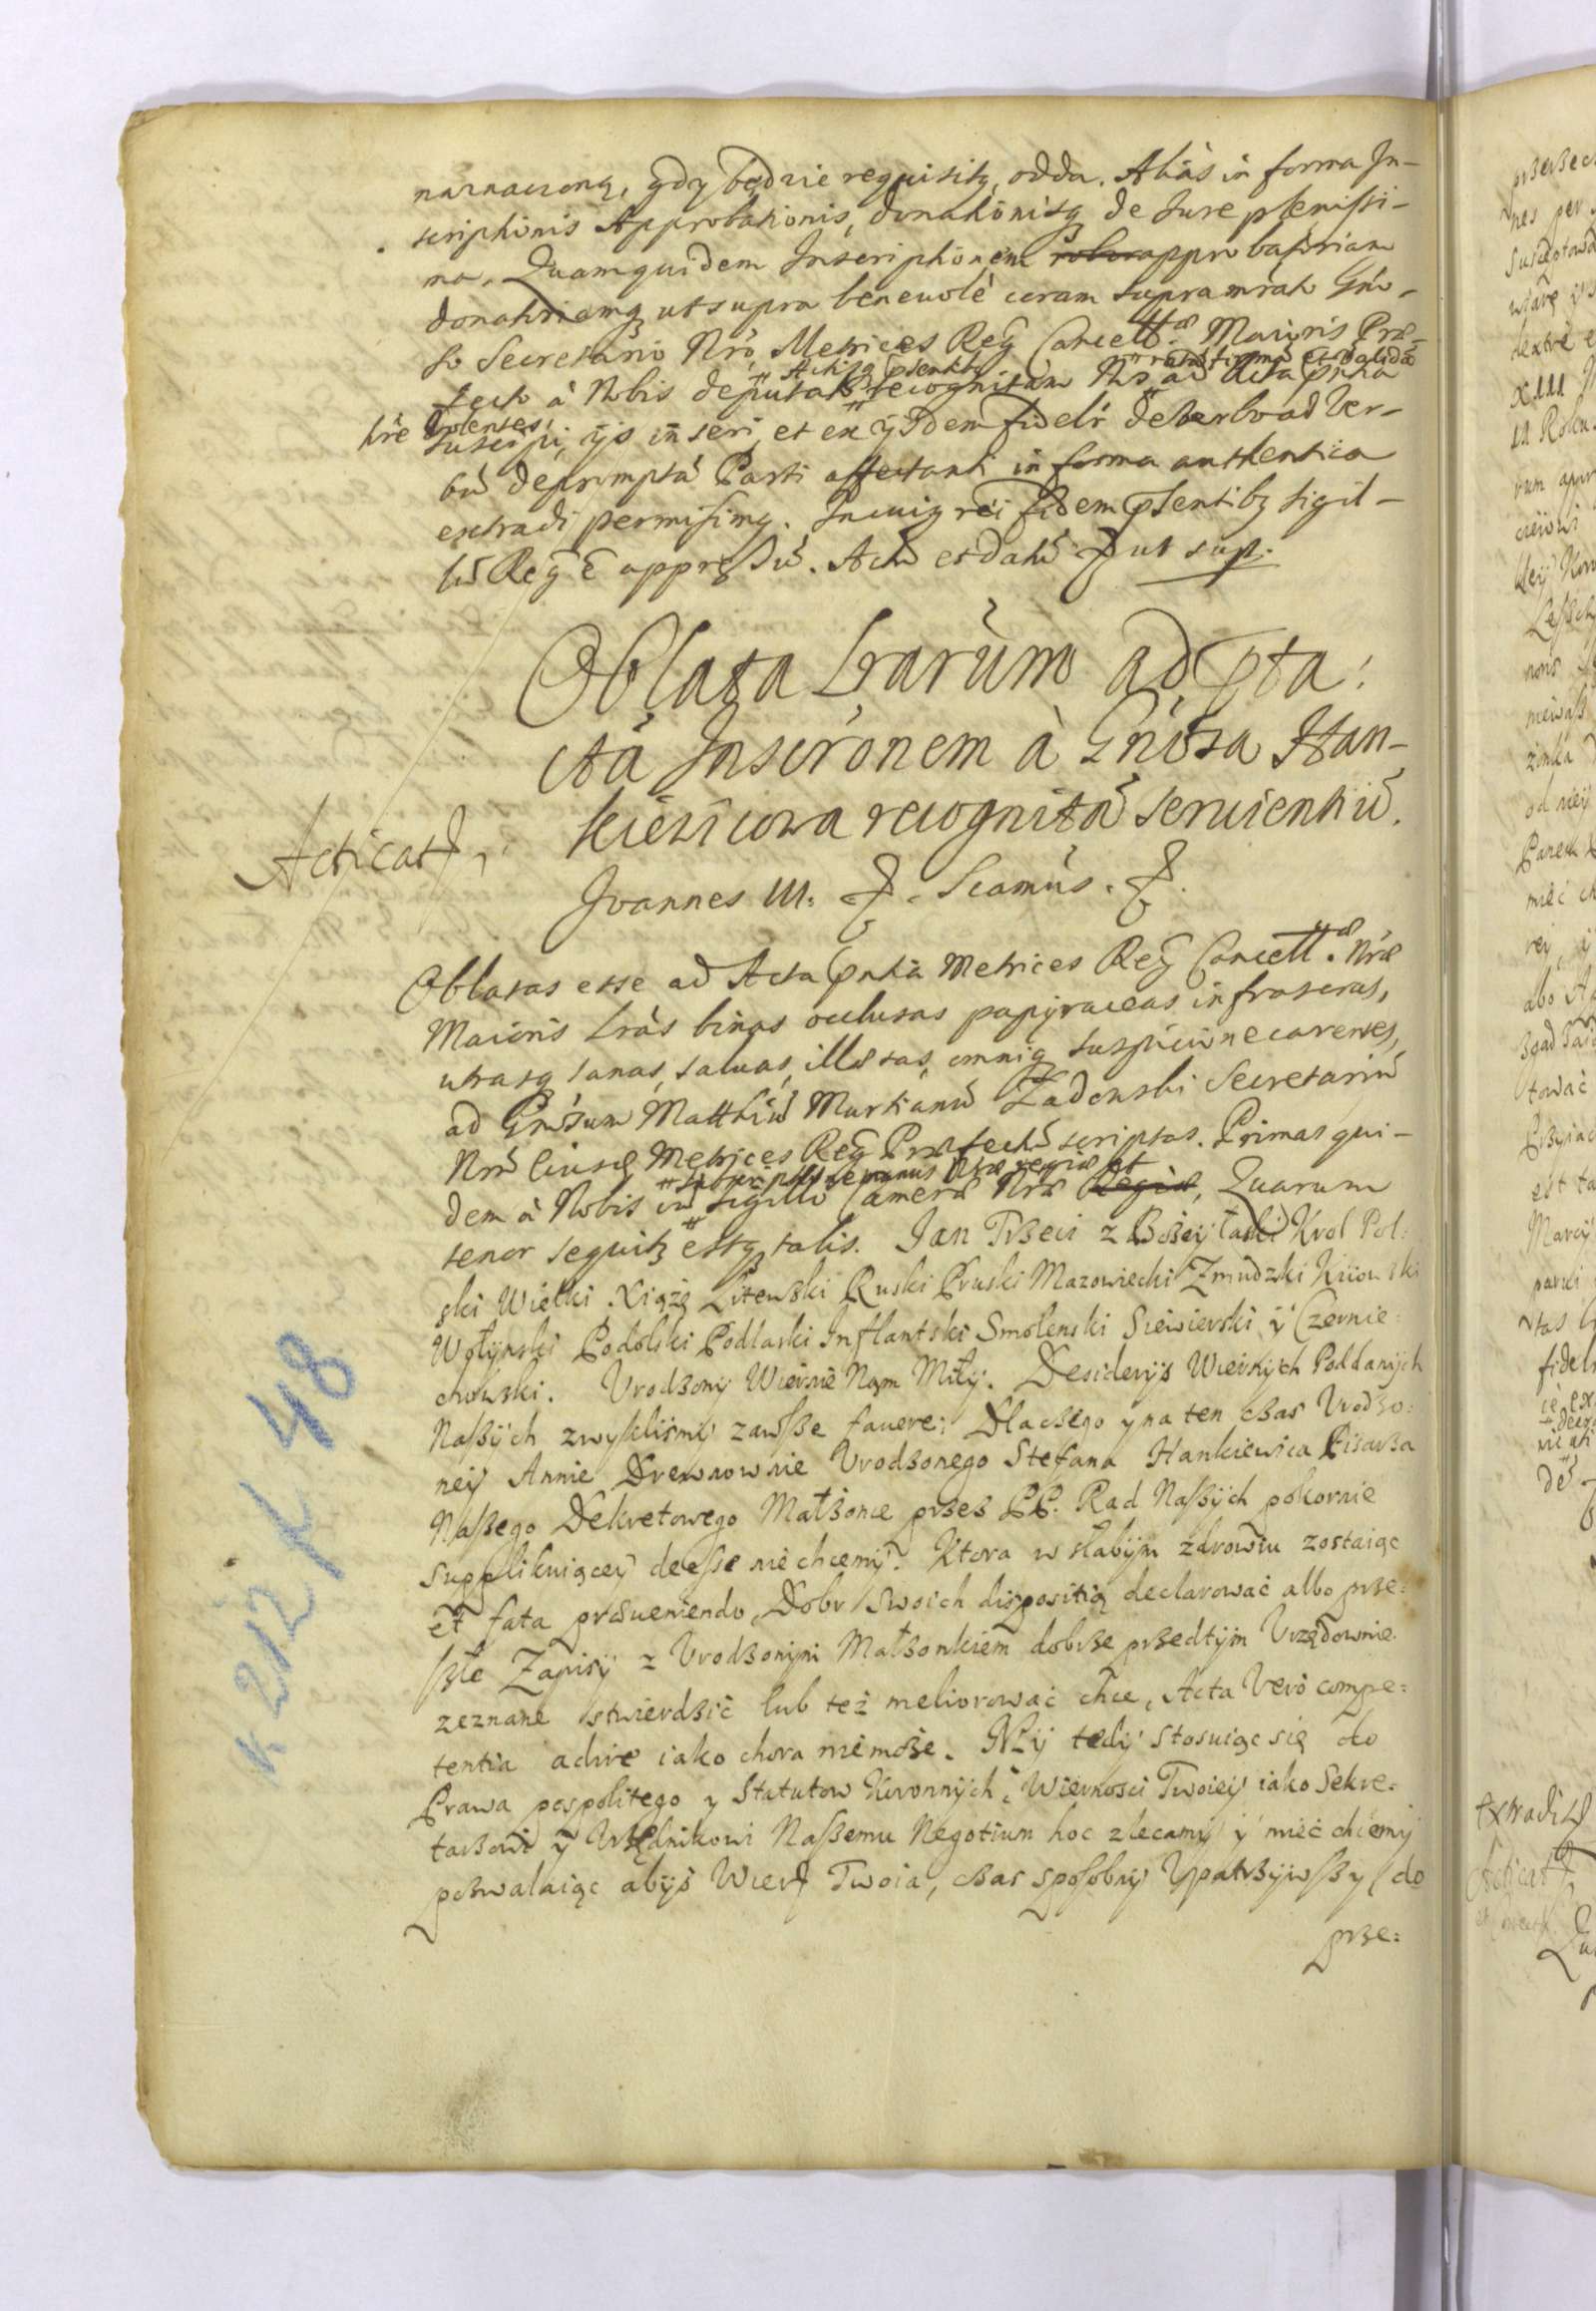 naznaczoną, gdy będzie requisitq, odda. Aliàs in forma In-
scriptionis Approbationis, donationisq de Iure plenissi-
mo. Quamquidem Inscriptionem approbatoriam
donatoriamq ut supra beneuolè coram supramrato Gno-
so Secretario Nrô, Metrices Reg Cancell.æ Maioris Præ-
Actisq psentib ratã firmã et validã
fecto à Nobis deputato recognitam Nos ad Acta pnta
hre volentes
suscipi, ijs inseri, et ex ijsdem fideli de verbo ad Ver-
bũ depromptã Parti affectanti in forma authentica
extradi permisimq. In cuiq rei fidem psentibq sigil-
lũ Reg ẽ appręssũ. Actũ et datũ ut sup.
Oblata Lrarùm ad pta:
ctã Inscrônem à Gnôsa Han-
kiewiczowa recognitã seruientiũ.
Acticat
Joannes III. Scamùs.
Oblatas esse ad Acta pntia Metrices Reg Cancell.æ Nræ
Maioris Lràs binas occlusas papyraceas infrascras,
utrasq sanas, saluas, illæsas, omniq suspicione carentes,
ad Gnôsum Matthiũ Martianũ Ładowski Secretariũ
Nrũ Eiusq Metrices Reg Præfectũ scriptas. Primas qui-
subscriptione manus Nræ regiæ et
dem à Nobis cũ sigillo Cameræ Nræ Regiæ, Quarum
tenor sequitq estq talis. Jan Trzeci z Bożey łaski Krol Pol:
ski Wielki Xiążę Litewski Ruski Pruski Mazowiecki Zmudzki Kijowski
Wołynski Podolski Podlaski Inflantski Smolenski Siewierski y Czernie:
chowski. Vrodzony Wiernie Nam Miły. Desideryis Wiernych Poddanych
Naszych zwykliśmy zawsze fauere; Dlaczego y na ten czas Vrodzo:
ney Annie Drewnownie Vrodzonego Stefana Hankiewica Pisarza
Naszego Dekretowego Małżonce przez PP. Rad Naszych pokornie
supplikuiącey deesse nie chcemy. Ktora w słabym zdrowiu zostaiąc
et fata præueniendo, Dobr swoich dispositią declarować albo prze:
szłe Zapisy z Vrodzonym Małżonkiem dobrze przedtym Vrzędownie
zeznane stwierdzić lub też meliorować chce, Acta Verò compe:
tentia adire iako chora nie może. My tedy stosuiąc się do
Prawa pospolitego y Statutow Koronnych, Wiernosci Twoiey iako Sekre:
tarzowi y Urzędnikowi Naszemu Negotium hoc zlecamy y mieć chcemy
pozwalaiąc abyś Wier Twoia, czas sposobny Upatrzywszy do
prze:
K 212 K 48